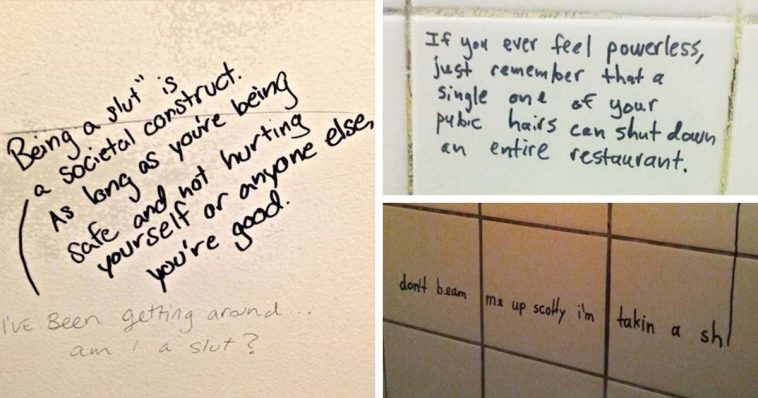 Being a slut" is
a societal construct.
As long as you're being
safe and not hurting
yourself or anyone else,
you're good.
I've Been getting around..
am i a slut?
If you ever feel powerless,
just remember that a
single one of your
pubic hairs can shut down
an entire restaurant.
don't beam me up scotty i'm takin a sh